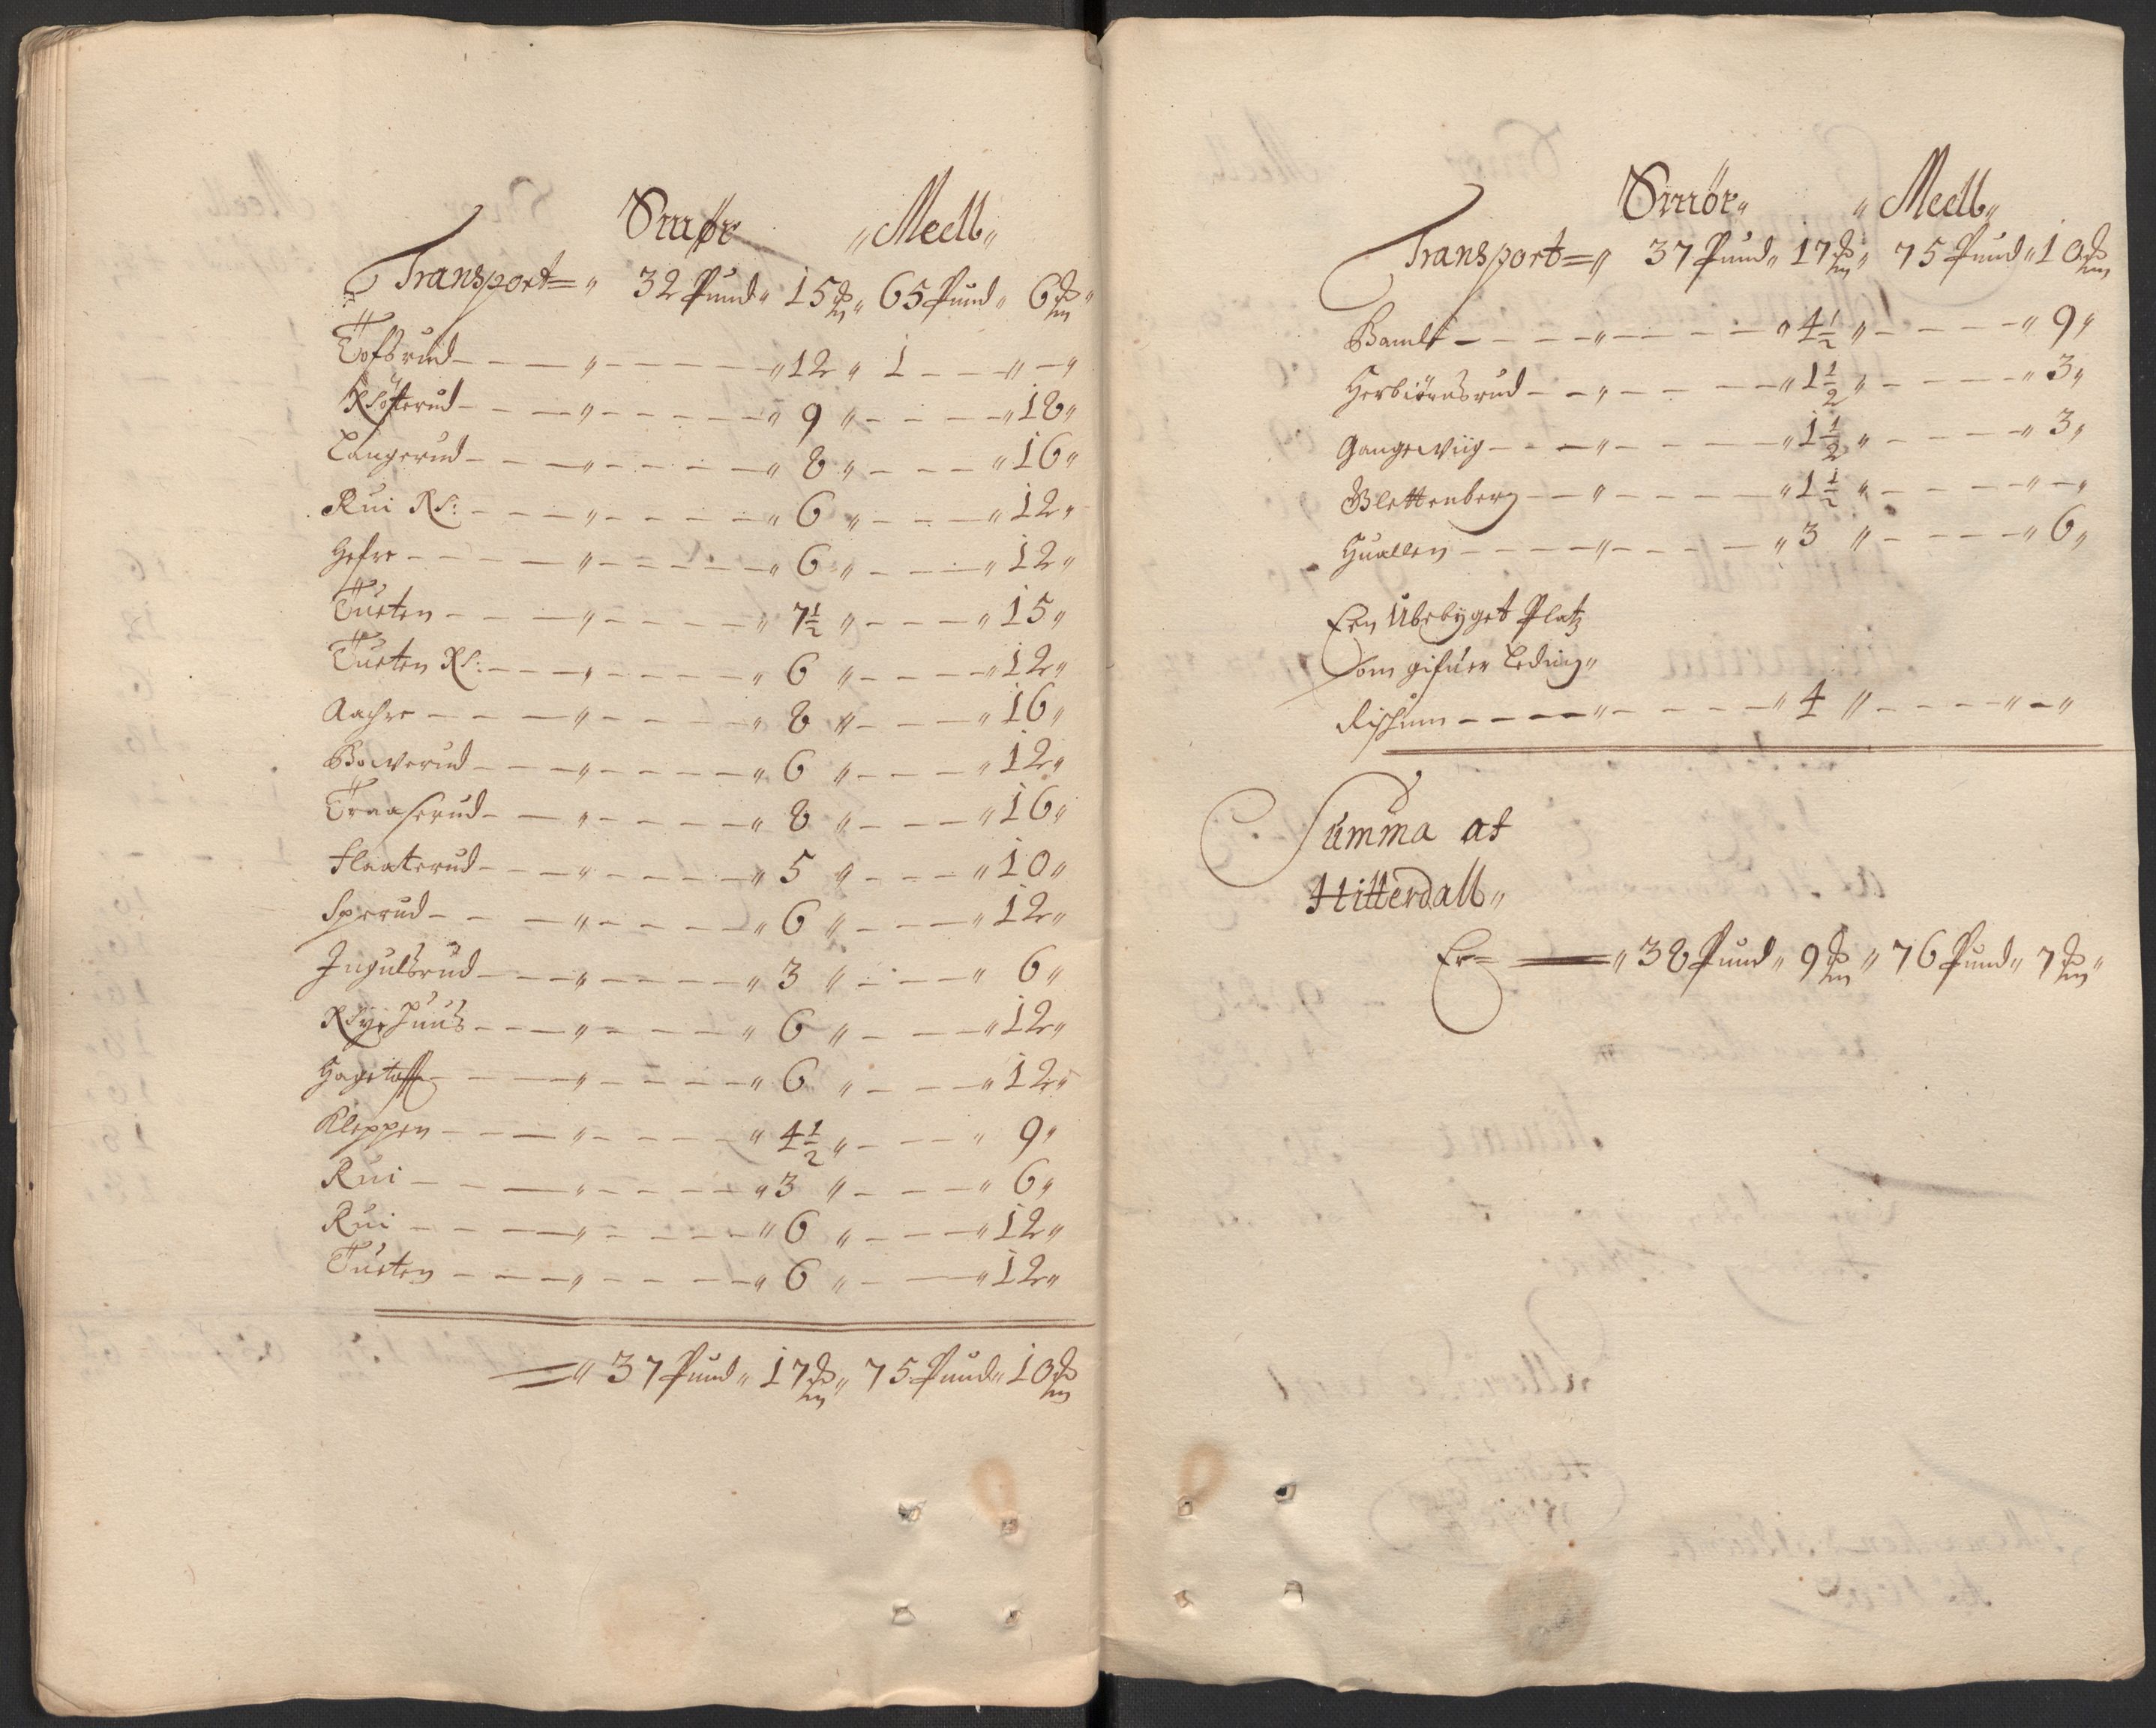 Smør " Meell "
Transport = " 32 Pund " 15 " 65 Pund " 6 "
Tofsrud — " — " 12 " 1 — " — "
— " — " 9 " — " 18 "
Langerud — " — " 8 " — " 16 "
Rui — " — " 6 " — " 12 "
Hefre — " — " 6 " — " 12 "
Tueten — " — " 7½ " — " 15 "
Tueten — " — " 6 " — " 12 "
Aachre — " — " 8 " — " 16 "
Bowerud — " — " 6 " — " 12 "
Traaserud — " — " 8 " — " 16 "
Flaaterud — " — " 5 " — " 10 "
Sperud — " — " 6 " — " 12 "
Ingulsrud — " — " 3 " — " 6 "
— " — " 6 " — " 12 "
— " — " 6 " — " 12 "
Kleppen — " — " 4½ " — " 9 "
Rui — " — " 3 " — " 6 "
Rui — " — " 6 " — " 12 "
Tueten — " — " 6 " — " 12 "
= " 37 Pund " 17 " 75 Pund " 10
Smör " " Meell "
Transport = " 37 Pund " 17 " 75 Pund " 10
Bamle — " — " 4½ " — " 9 "
Herbiörnsrud — " — " 1½ " — " 3 "
Gangewiig — " — " 1½ " — " 3 "
Blettenberg — " — " 1½ " — " — "
Huallen — " — " 3 " — " 6 "
Een Ubebyget Platz
som gifuer Leding "
— " — " 4 " — " — "
Summa af
Hitterdall "
Er = — " 38 Pund " 9 " 76 Pund " 7 "